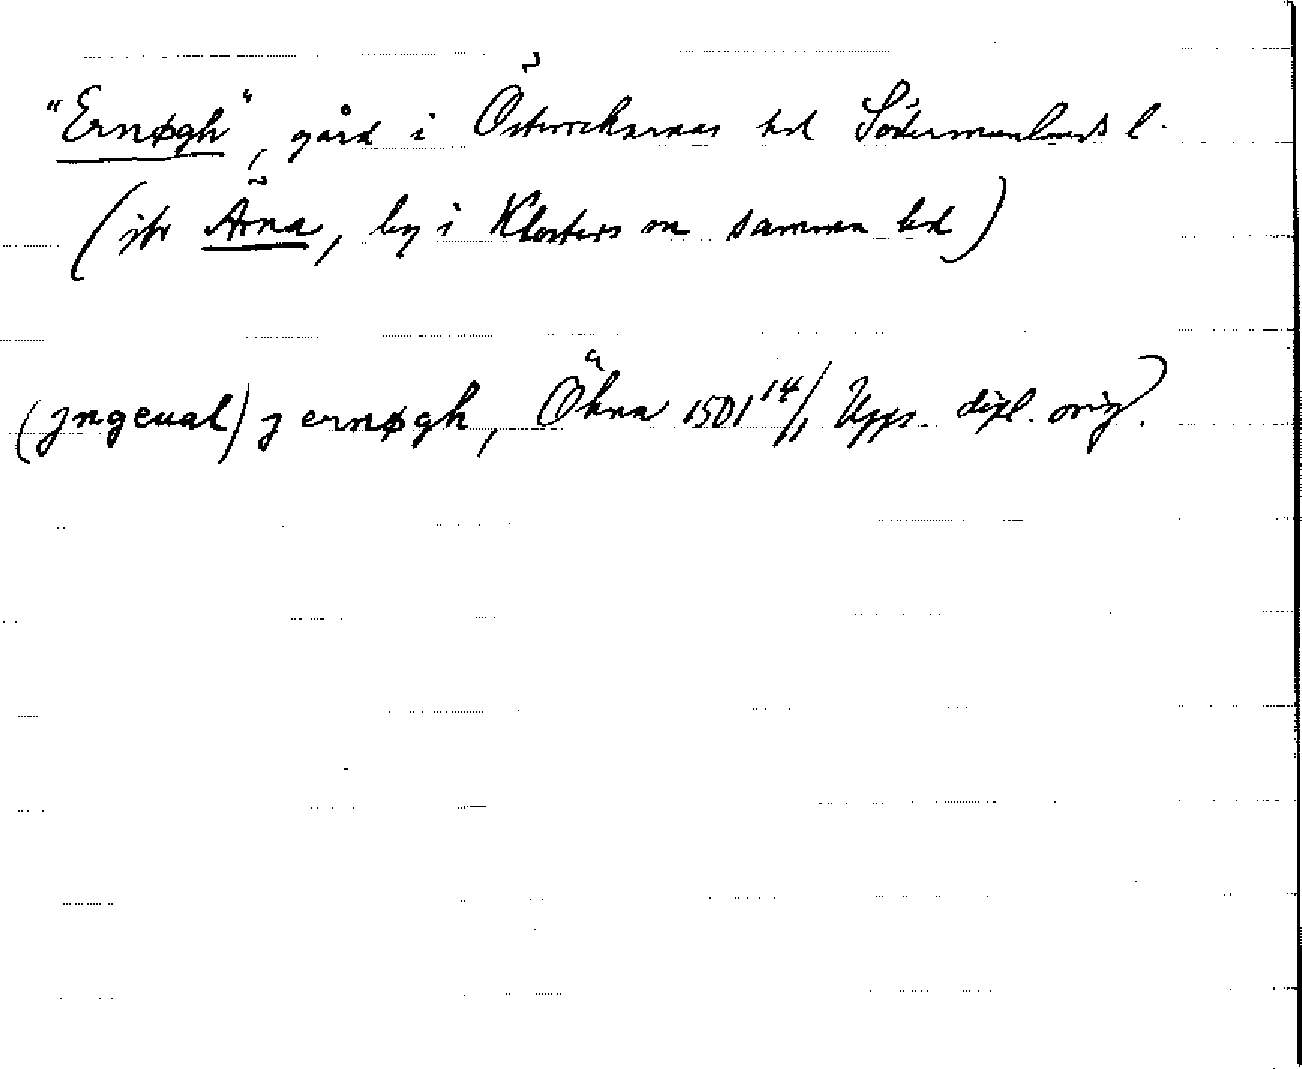 "Ernøgh", gård i Österrekarnas hd Södermanlands l.
(jfr Ärna, by i Klosters sn samma hd)
(jngeual) j ernøgh, Ökna 1501 14/1 Upps. dipl. orig.